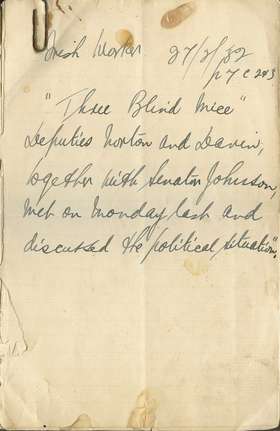 Irish Worker 27/2/32
p 7 c 2+3
"Three Blind Mice"
Deputies Norton and Davin,
together with Senator Johnson,
met on Monday last and
discussed the political situation".